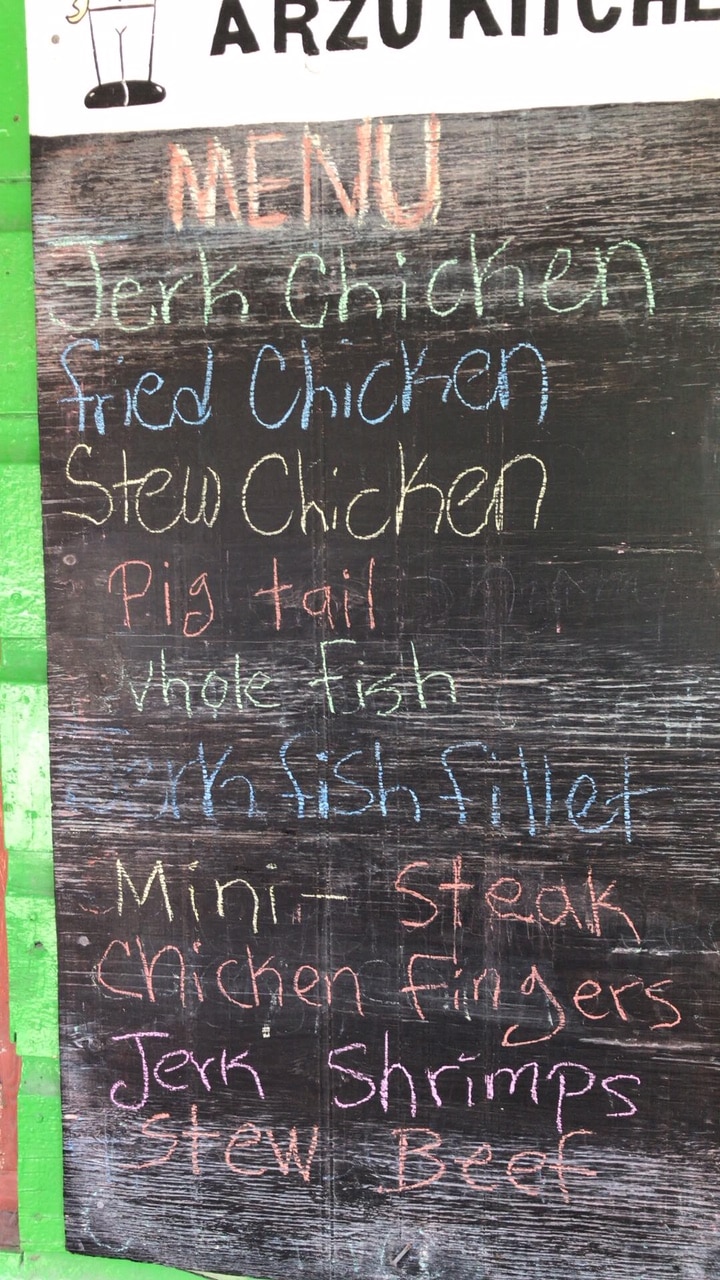 ARZU KITCHE
MENU
Jerk Chicken
fried Chicken
Stew Chicken
Pig tail
whole fish
Jerk fish fillet
Mini - Steak
Chicken Fingers
Jerk Shrimps
Stew Beef